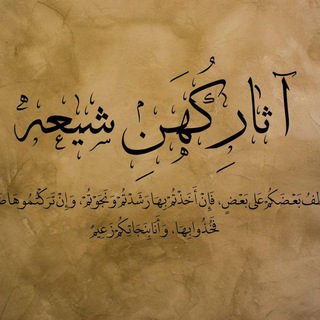 آثارِ كُهَنِ شيعه
بَعْضَكُم عَلَى بَعْضٍ، فَإِنْ أَخَذْتُمْ بِهَا رَشَدْتُمْ وَنَجَوْتُمْ، وَإِنْ تَرَكْتُمُوهَا
فَخُذُوا بِهَا، وَأَنَا بِنَجَاتِكُمْ زَعِيمٌ